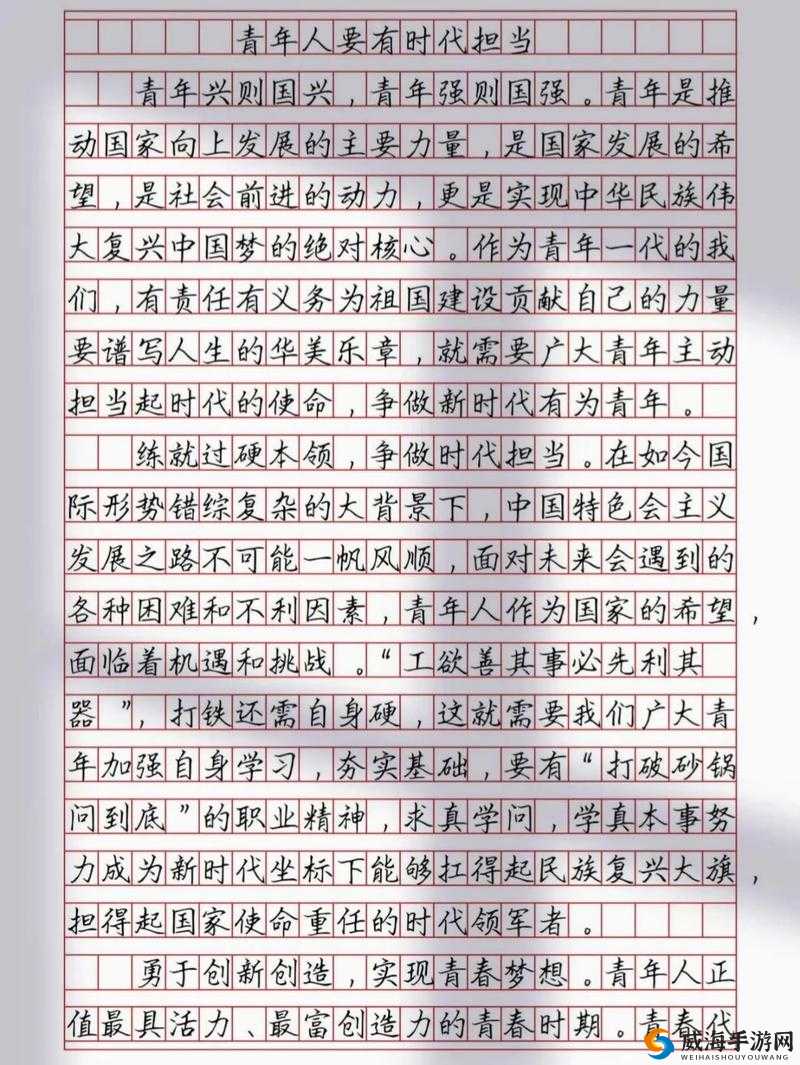 青年人要有时代担当
青年兴则国兴，青年强则国强。青年是推
动国家向上发展的主要力量，是国家发展的希
望，是社会前进的动力，更是实现中华民族伟
大复兴中国梦的绝对核心。作为青年一代的我
们，有责任有义务为祖国建设贡献自己的力量
要谱写人生的华美乐章，就需要广大青年主动
担当起时代的使命，争做新时代有为青年。
练就过硬本领，争做时代担当。在如今国
际形势错综复杂的大背景下，中国特色会主义
发展之路不可能一帆风顺，面对未来会遇到的
各种困难和不利因素，青年人作为国家的希望，
面临着机遇和挑战。“工欲善其事必先利其
器”，打铁还需自身硬，这就需要我们广大青
年加强自身学习，夯实基础，要有“打破砂锅
问到底”的职业精神，求真学问，学真本事努
力成为新时代坐标下能够扛得起民族复兴大旗，
担得起国家使命重任的时代领军者。
勇于创新创造，实现青春梦想。青年人正
值最具活力、最富创造力的青春时期。青春代
威海手游网
WEIHAISHOUYOUWANG